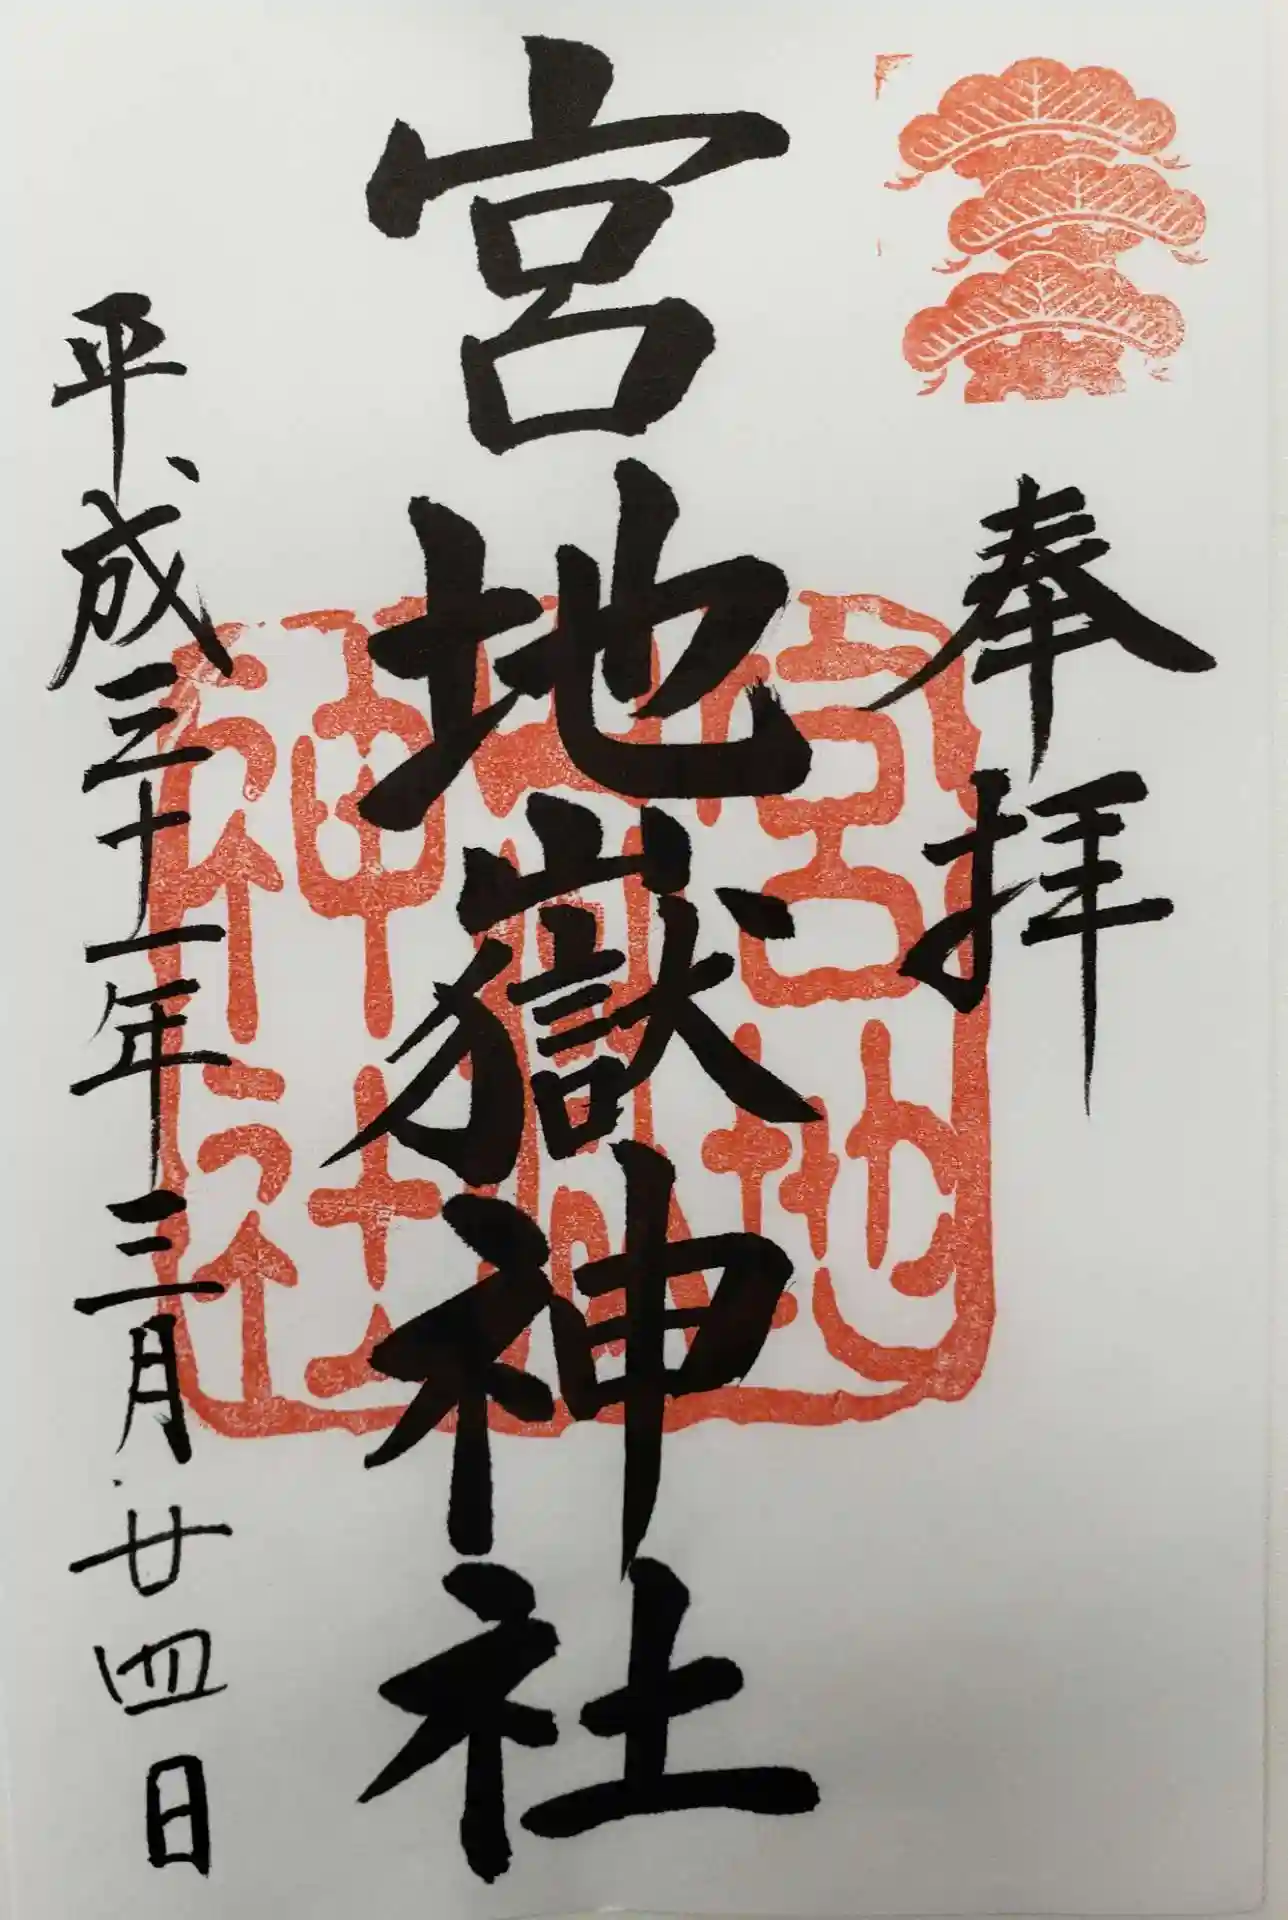 奉拝
宮地嶽神社
平成三十一年三月廿四日
宮地嶽神社